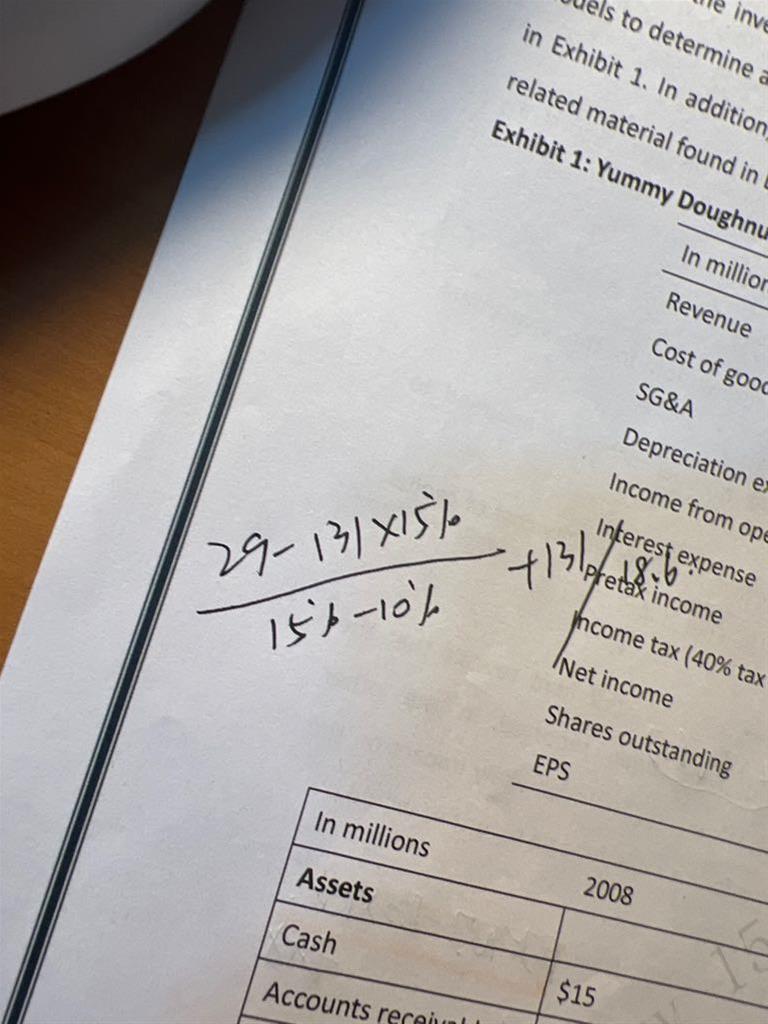 the inve
odels to determine a
in Exhibit 1. In addition,
related material found in
Exhibit 1: Yummy Doughnu
In million
Revenue
Cost of good
SG&A
Depreciation ex
Income from ope
Interest expense
Pretax income
Income tax (40% tax
Net income
Shares outstanding
EPS
29-131×15%
15%-10%
+131/18.6
In millions
Assets 2008
Cash $15
Accounts receivabl